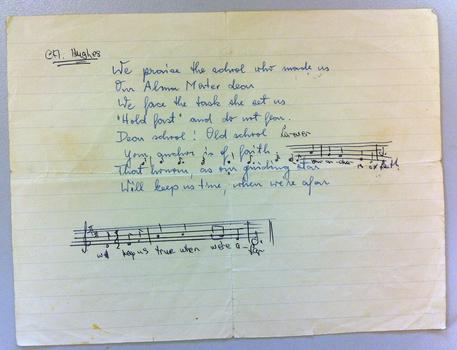 Hughes
We praise the school who made us
Our Alma Mater dear
We face the task she set us
"Hold fast" and do not fear.
Dear school! Old school
Your anchor is of faith
is of faith
That honour, as our guiding star
Will keep us true, when we're afar
will keep us true when we're a-far